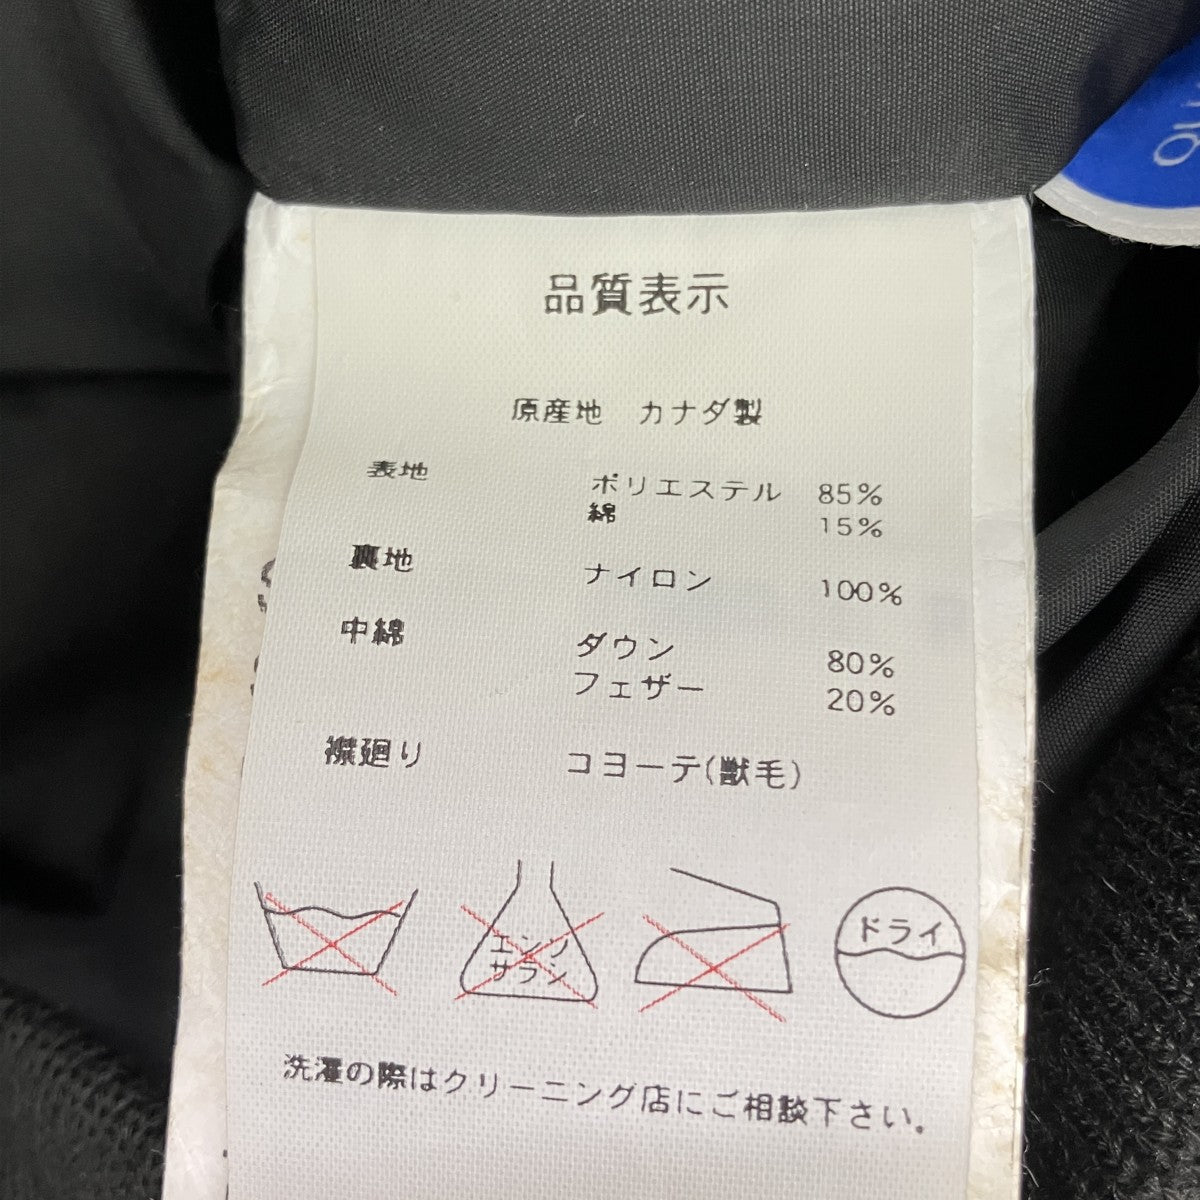 品質表示
原産地 カナダ製
表地 ポリエステル 85%
綿 15%
裏地 ナイロン 100%
中綿 ダウン 80%
フェザー 20%
襟廻り コヨーテ(獣毛)
エンソ
サラシ
ドライ
洗濯の際はクリーニング店にご相談下さい。